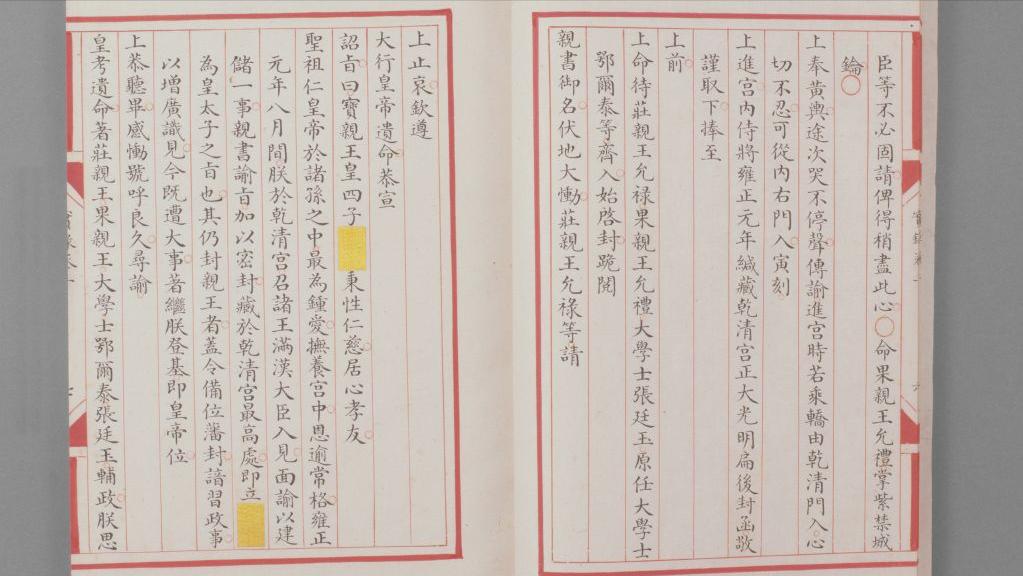 臣等不必固請俾得稍盡此心○命果親王允禮掌紫禁城
鑰○
上奉黃輿途次哭不停聲傳諭進宮時若乘轎由乾清門入心
切不忍可從內右門入寅刻
上進宮內侍將雍正元年緘藏乾清宮正大光明扁後封函敬
謹取下捧至
上前
上命待莊親王允祿果親王允禮大學士張廷玉原任大學士
鄂爾泰等齊入始啓封跪閱
親書御名伏地大慟莊親王允祿等請
上止哀欽遵
大行皇帝遺命恭宣
詔旨曰寶親王皇四子秉性仁慈居心孝友
聖祖仁皇帝於諸孫之中最為鍾愛撫養宮中恩逾常格雍正
元年八月間朕於乾清宮召諸王滿漢大臣入見面諭以建
儲一事親書諭旨加以密封藏於乾清宮最高處即立
為皇太子之旨也其仍封親王者蓋令備位藩封諳習政事
以增廣識見今既遭大事著繼朕登基即皇帝位
上恭聽畢感慟號呼良久尋諭
皇考遺命著莊親王果親王大學士鄂爾泰張廷玉輔政朕思